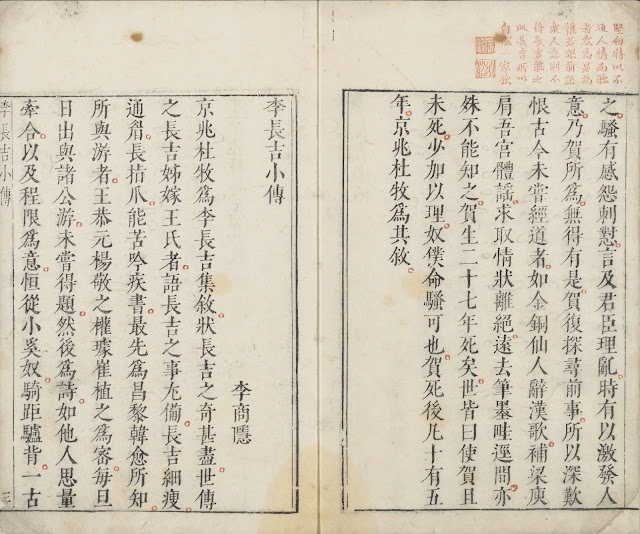 此長吉所以
自成一家歟
之騷有感怨刺懟言及君臣理亂時有以激發人
意乃賀所爲無得有是賀復探尋前事所以深歎
恨古今未嘗經道者如金銅仙人辭漢歌補梁庾
肩吾宮體謠求取情狀離絕遠去筆墨畦逕間亦
殊不能知之賀生二十七年死矣世皆曰使賀且
未死少加以理奴僕命騷可也賀死後凡十有五
年京兆杜牧爲其敘
李長吉小傳
李商隱
京兆杜牧爲李長吉集敘狀長吉之奇甚盡世傳
之長吉姊嫁王氏者語長吉之事尤備長吉細瘦
通眉長指爪能苦吟疾書最先爲昌黎韓愈所知
所與游者王恭元楊敬之權璩崔植之爲密每旦
日出與諸公游未嘗得題然後爲詩如他人思量
牽合以及程限爲意恒從小奚奴騎距驢背一古
李長吉小傳
三